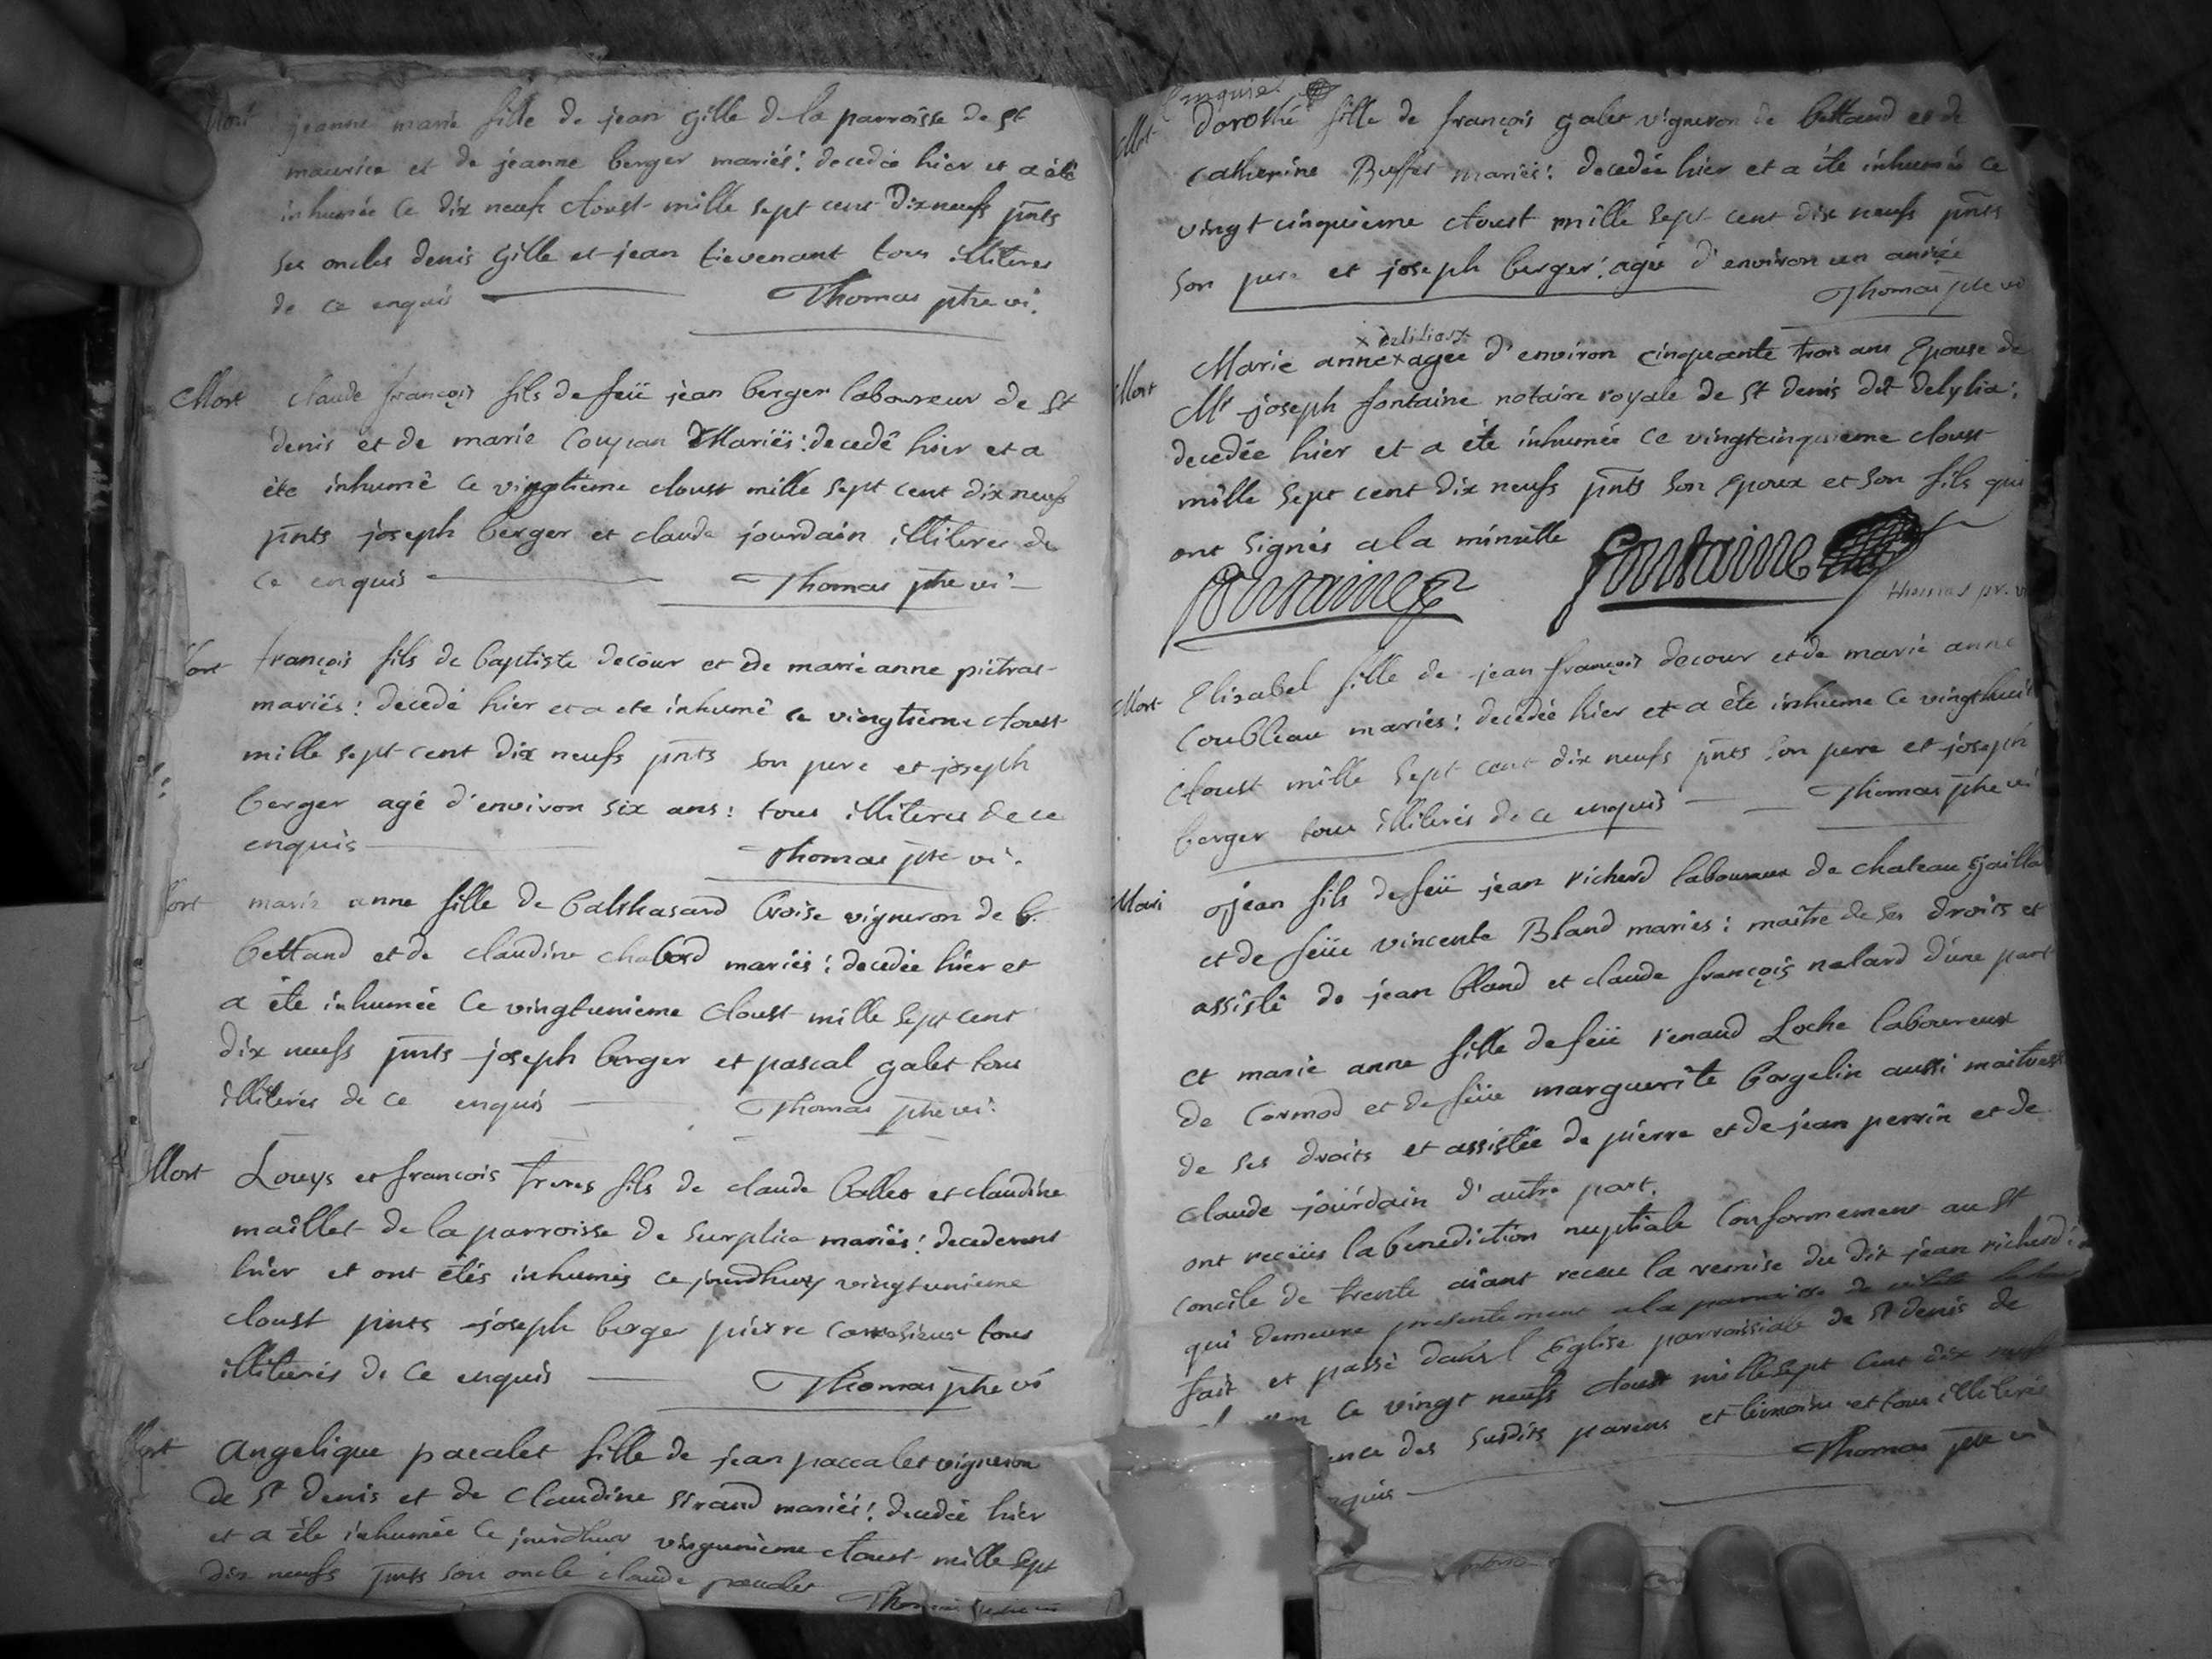 Mort jeanne marie fille de jean gille de la parroisse de st
maurice et de jeanne berger mariés: decedée hier et a été
inhumée ce dix neufs Aoust mille sept cent dixneufs pnts
ses oncles denis gille et jean tievenant tous illiteres
de ce enquis Thomas ptre vi.
Mort claude françois fils de feü jean berger laboureur de st
denis et de marie Mariës: decedê hier et a
éte inhumê ce vingtieme Aoust mille sept cent dix neufs
pnts joseph berger et claude jourdain illiteres de
ce enquis Thomas ptre vi
Mort françois fils de baptiste decour et de marie anne pietras
mariës: decedé hier et a ete inhumê ce vingtieme Aoust
mille sept cent dix neufs pnts son pere et joseph
berger agé d'environ six ans: tous illiteres de ce
enquis Thomas ptre vi.
Mort marie anne fille de balthasard Croise vigneron de
bettand et de claudine chabod mariës: decedée hier et
a éte inhumée ce vingtunieme Aoust mille sept cent
dix neufs pnts joseph berger et pascal galet tous
illiterés de ce enquis Thomas ptre vi.
Mort Louys et francois freres fils de claude ballet et claudine
maillet de la parroisse de surplice mariës: decederent
hier et ont étés inhumés ce jourdhuy vingtunieme
Aoust pnts joseph berger pierre tous
illiterés de ce enquis Thomas ptre vi
Mort angelique pacalet fille de jean paccalet vigneron
de st denis et de claudine sirand mariés: decedée hier
et a éte inhumée ce jourdhuy vingunieme Aoust mille sept
dix neufs pnts son oncle claude pacalet Thomas ptre vi
enquis.
Mort dorothé fille de françois galet vigneron de bettand et de
catherine Buffet mariës: decedée hier et a éte inhumée ce
vingt cinquieme Aoust mille sept cent dix neufs pnts
son pere et joseph berger: agée d'environ un année
Thomas ptre vi
x delilia x
Mort Marie anne x agée d'environ cinquante trois ans Epouse de
Mr joseph fontaine notaire royale de st denis dit delylia:
decedée hier et a éte inhumée ce vingtcinquieme Aoust
mille sept cent dix neufs pnts son Epoux et son fils qui
ont signés a la minutte
fontaine fontaine
Thomas pr. vi
Mort Elisabel fille de jean françois decour et de marie anne
Coubleau mariës: decedée hier et a éte inhume ce vingthuit
Aoust mille sept cent dix neufs pnts son pere et joseph
berger tous illiterés de ce enquis Thomas ptre vi
Mari jean fils de feü jean richerd laboureur de chateau gailla
et de feüe vincente Bland mariës: maître de ses droits et
assisté de jean bland et claude françois nalard d'une part
et marie anne fille de feü renaud Loche laboureur
de Cormod et de feüe marguerite borgelin aussi maitresse
de ses droits et assistée de pierre et de jean perrin et de
claude jourdain d'autre part.
ont receüs la benediction nuptiale Conformement au St
Concile de trente aiant receu la remise du dit jean richerd
qui demeure presentement a la parroisse de
fait et passé dans l Eglise parroissiale de St denis de
ce vingt neufs Aoust mille sept cent dix neufs
ence des susdits parens et témoins et tous illiterés
nquis Thomas ptre vi